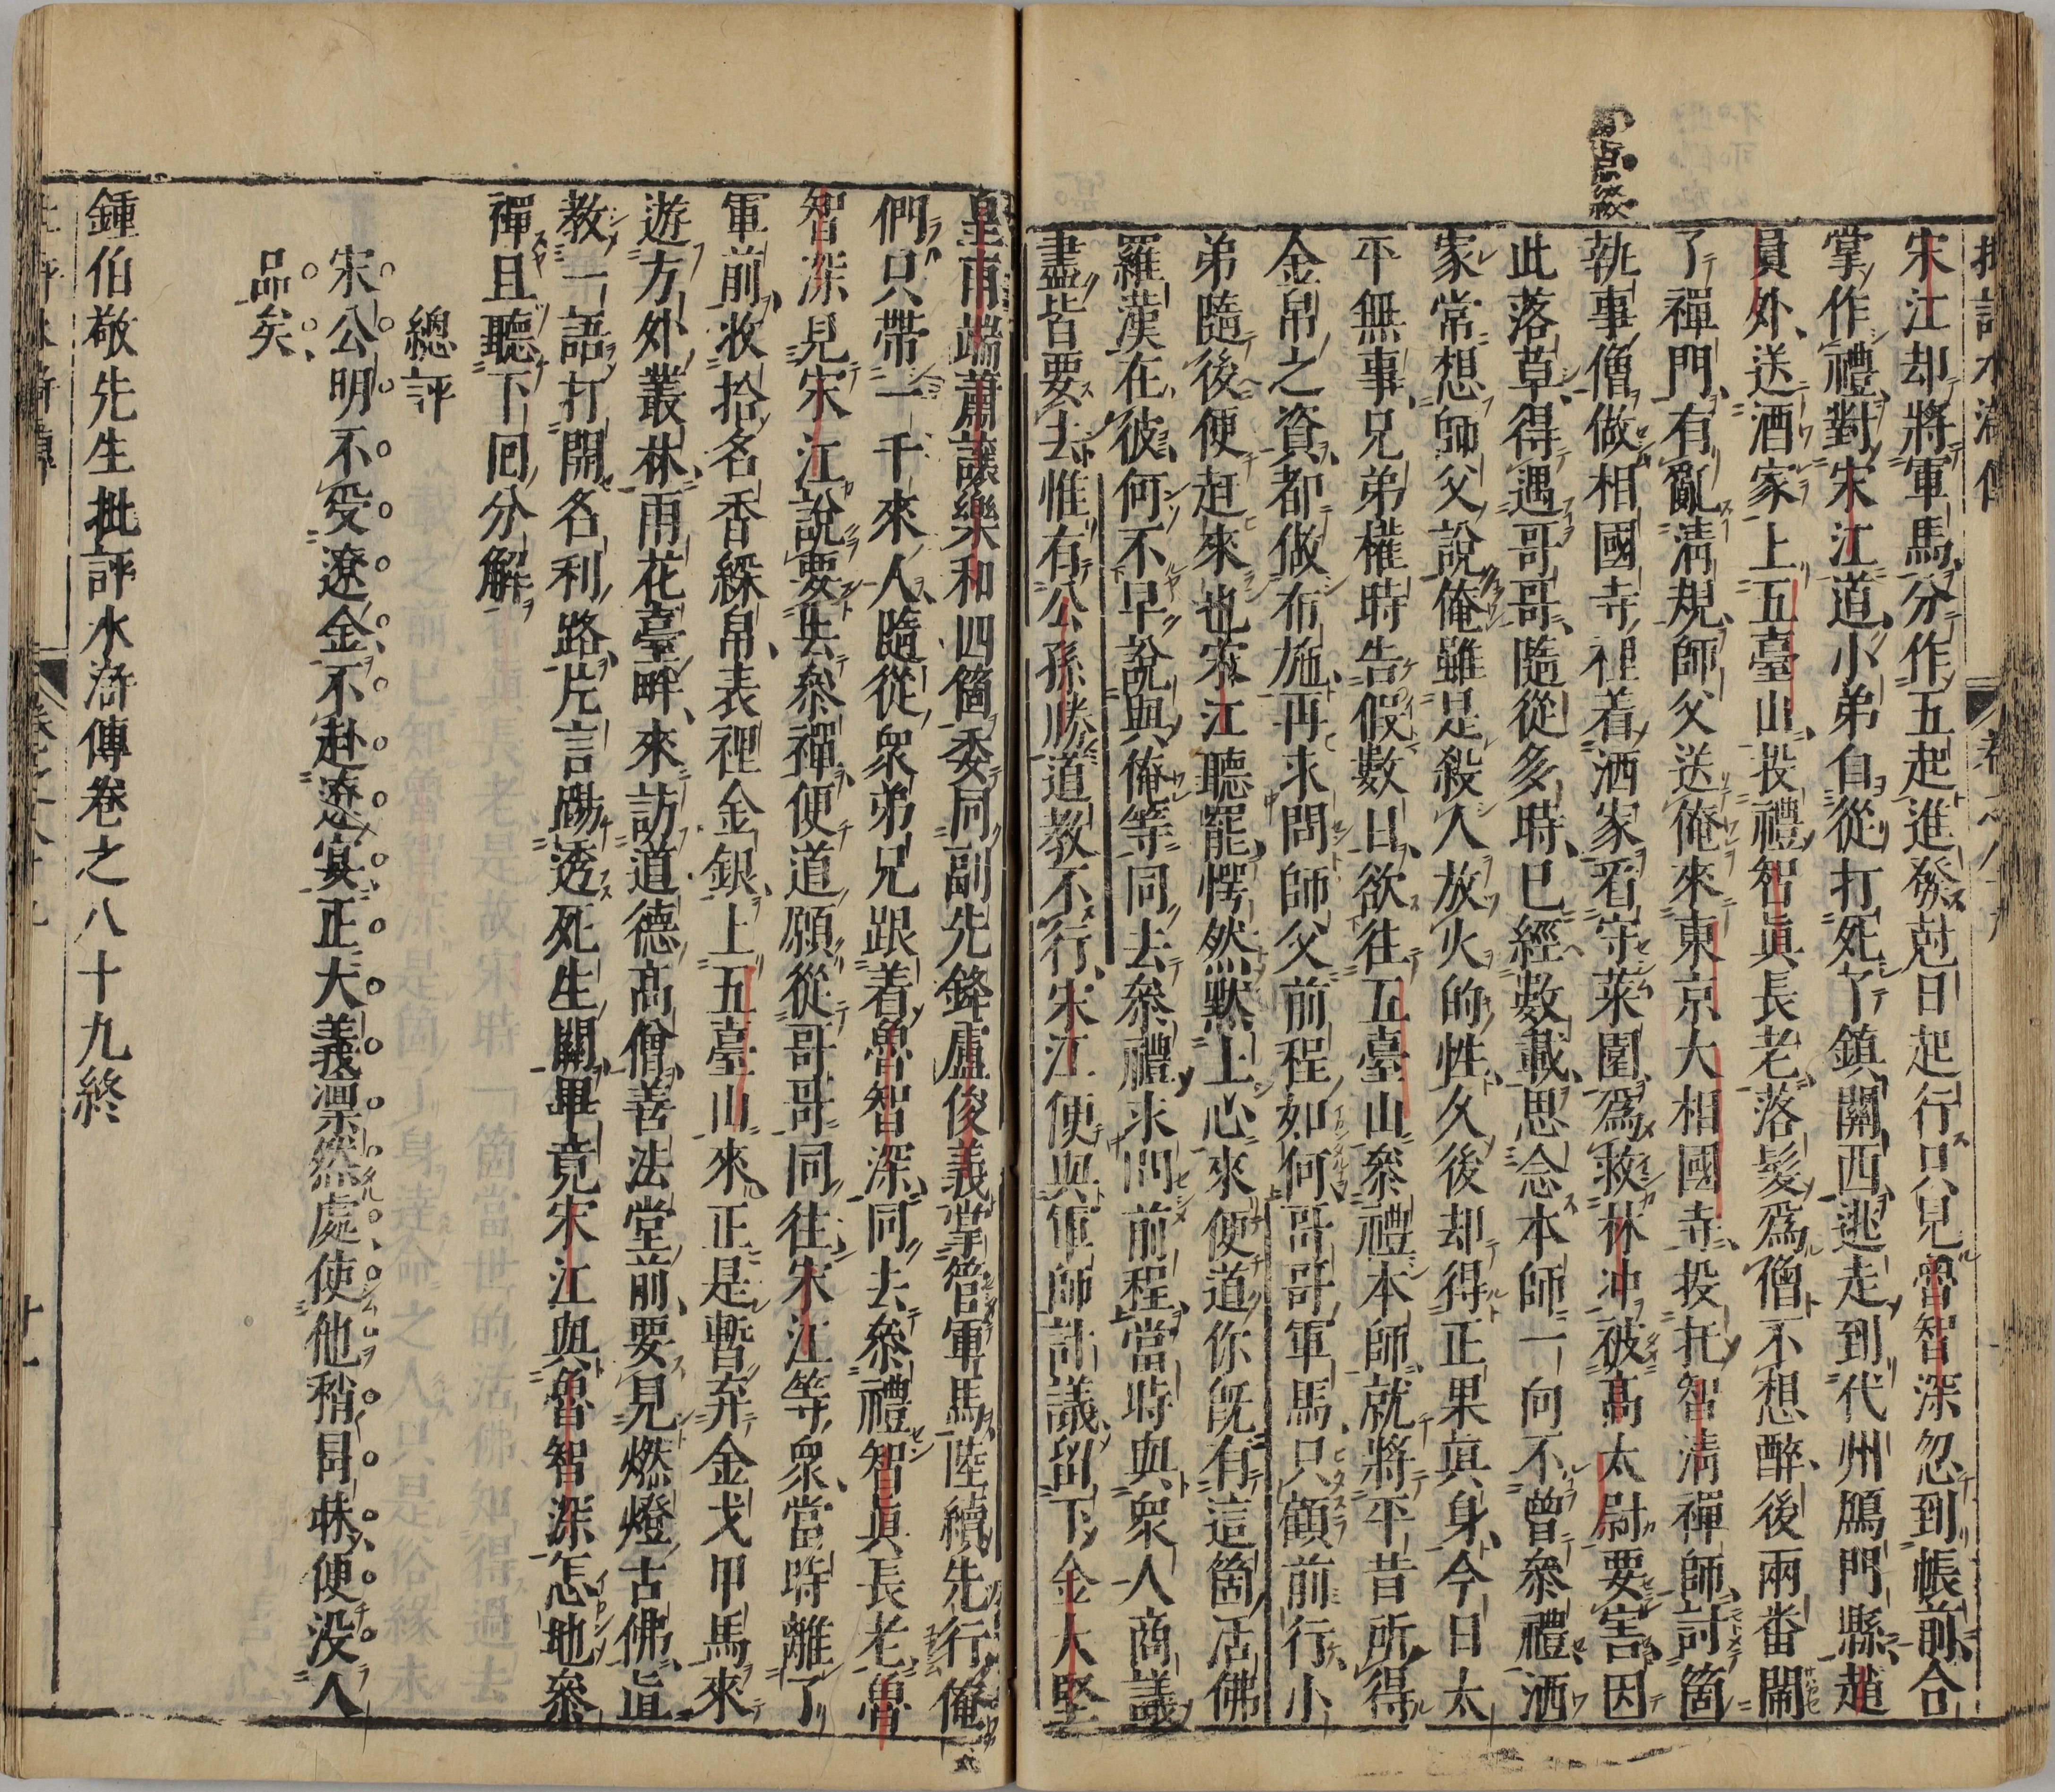 宋江却將軍馬分作五起進發尅日起行只見魯智深忽到帳前合
掌作禮對宋江道小弟自從打死了鎮關西逃走到代州鴈門縣趙
員外送洒家上五臺山投禮智真長老落髮爲僧不想醉後兩番鬧
了禪門有亂清規師父送俺來東京大相國寺投托智清禪師討箇
執事僧做相國寺裡着洒家看守菜園爲救林冲被高太尉要害因
此落草得遇哥哥隨從多時已經數載思念本師一向不曾參禮洒
家常想師父說俺雖是殺人放火的性久後却得正果真身今日太
平無事兄弟權時告假數日欲往五臺山參禮本師就將平昔所得
金帛之資都做布施再求問師父前程如何哥哥軍馬只顧前行小
弟隨後便趕來也宋江聽罷愕然默上心來便道你既有這箇活佛
羅漢在彼何不早說與俺等同去參禮求問前程當時與衆人商議
盡皆要去惟有公孫勝道教不行宋江便與軍師計議留下金大堅
皇甫端蕭讓樂和四箇委同副先鋒盧俊義掌管軍馬陸續先行俺
們只帶一千來人隨從衆弟兄跟着魯智深同去參禮智真長老魯
智深見宋江說要去參禪便道願從哥哥同往宋江等衆當時離了
軍前收拾名香綵帛表裡金銀上五臺山來正是暫弃金戈甲馬來
遊方外叢林雨花臺畔來訪道德高僧善法堂前要見燃燈古佛直
教一語打開名利路片言踢透死生關畢竟宋江與魯智深怎地參
禪且聽下回分解
總評
宋公明不受遼金不赴遼宴正大義凛然處使他稍昌袾便没人
品矣
鍾伯敬先生批評水滸傳卷之八十九終